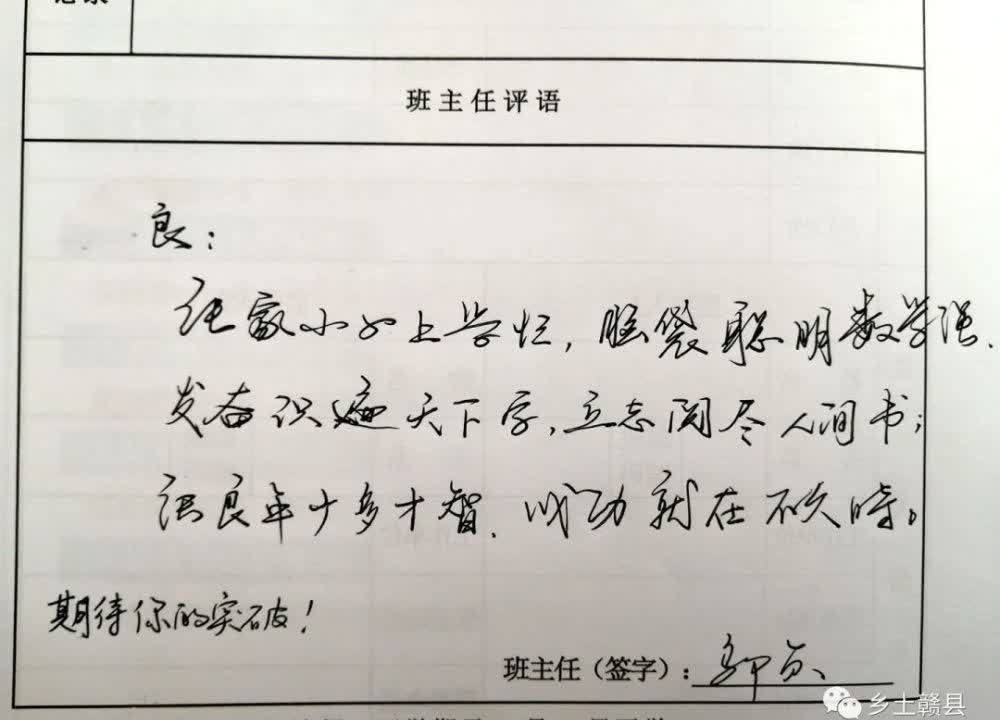 班主任评语
良：
张家小女上学忙，脑袋聪明数学强，
发奋识遍天下字，立志阅尽人间书；
张良年少多才智，成功就在不久时。
期待你的突破！
班主任（签字）：
乡土赣县